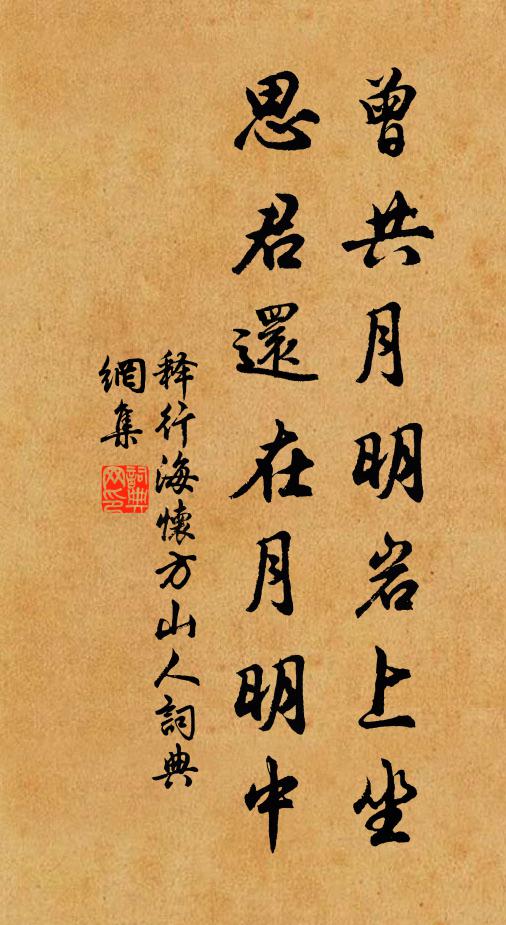 曾共月明岩上坐
思君還在月明中
释行海懷方山人詞典
網集
詞典網印